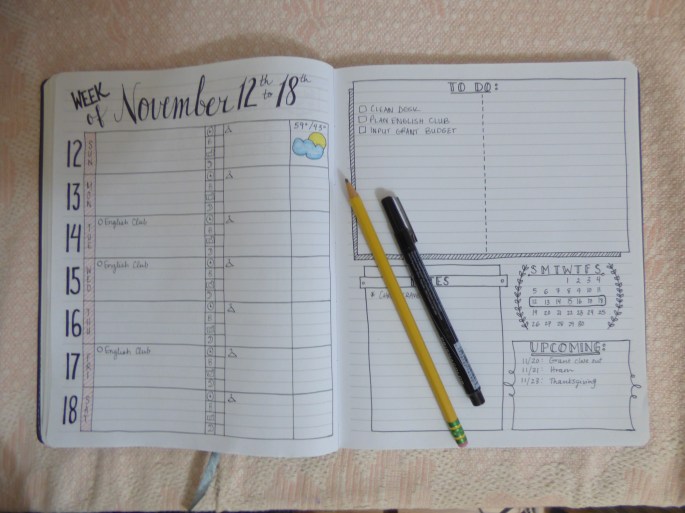 WEEK
of November 12th to 18th
59°/43°
12 SUN
13 MON
14 TUE
English Club
15 WED
English Club
16 THU
17 FRI
English Club
18 SAT
TO DO:
CLEAN DESK
PLAN ENGLISH CLUB
INPUT GRANT BUDGET
S M T W T F S
1 2 3 4
5 6 7 8 9 10 11
12 13 14 15 16 17 18
19 20 21 22 23 24 25
26 27 28 29 30
UPCOMING:
11/20: Grant
11/21:
11/23: Thanksgiving